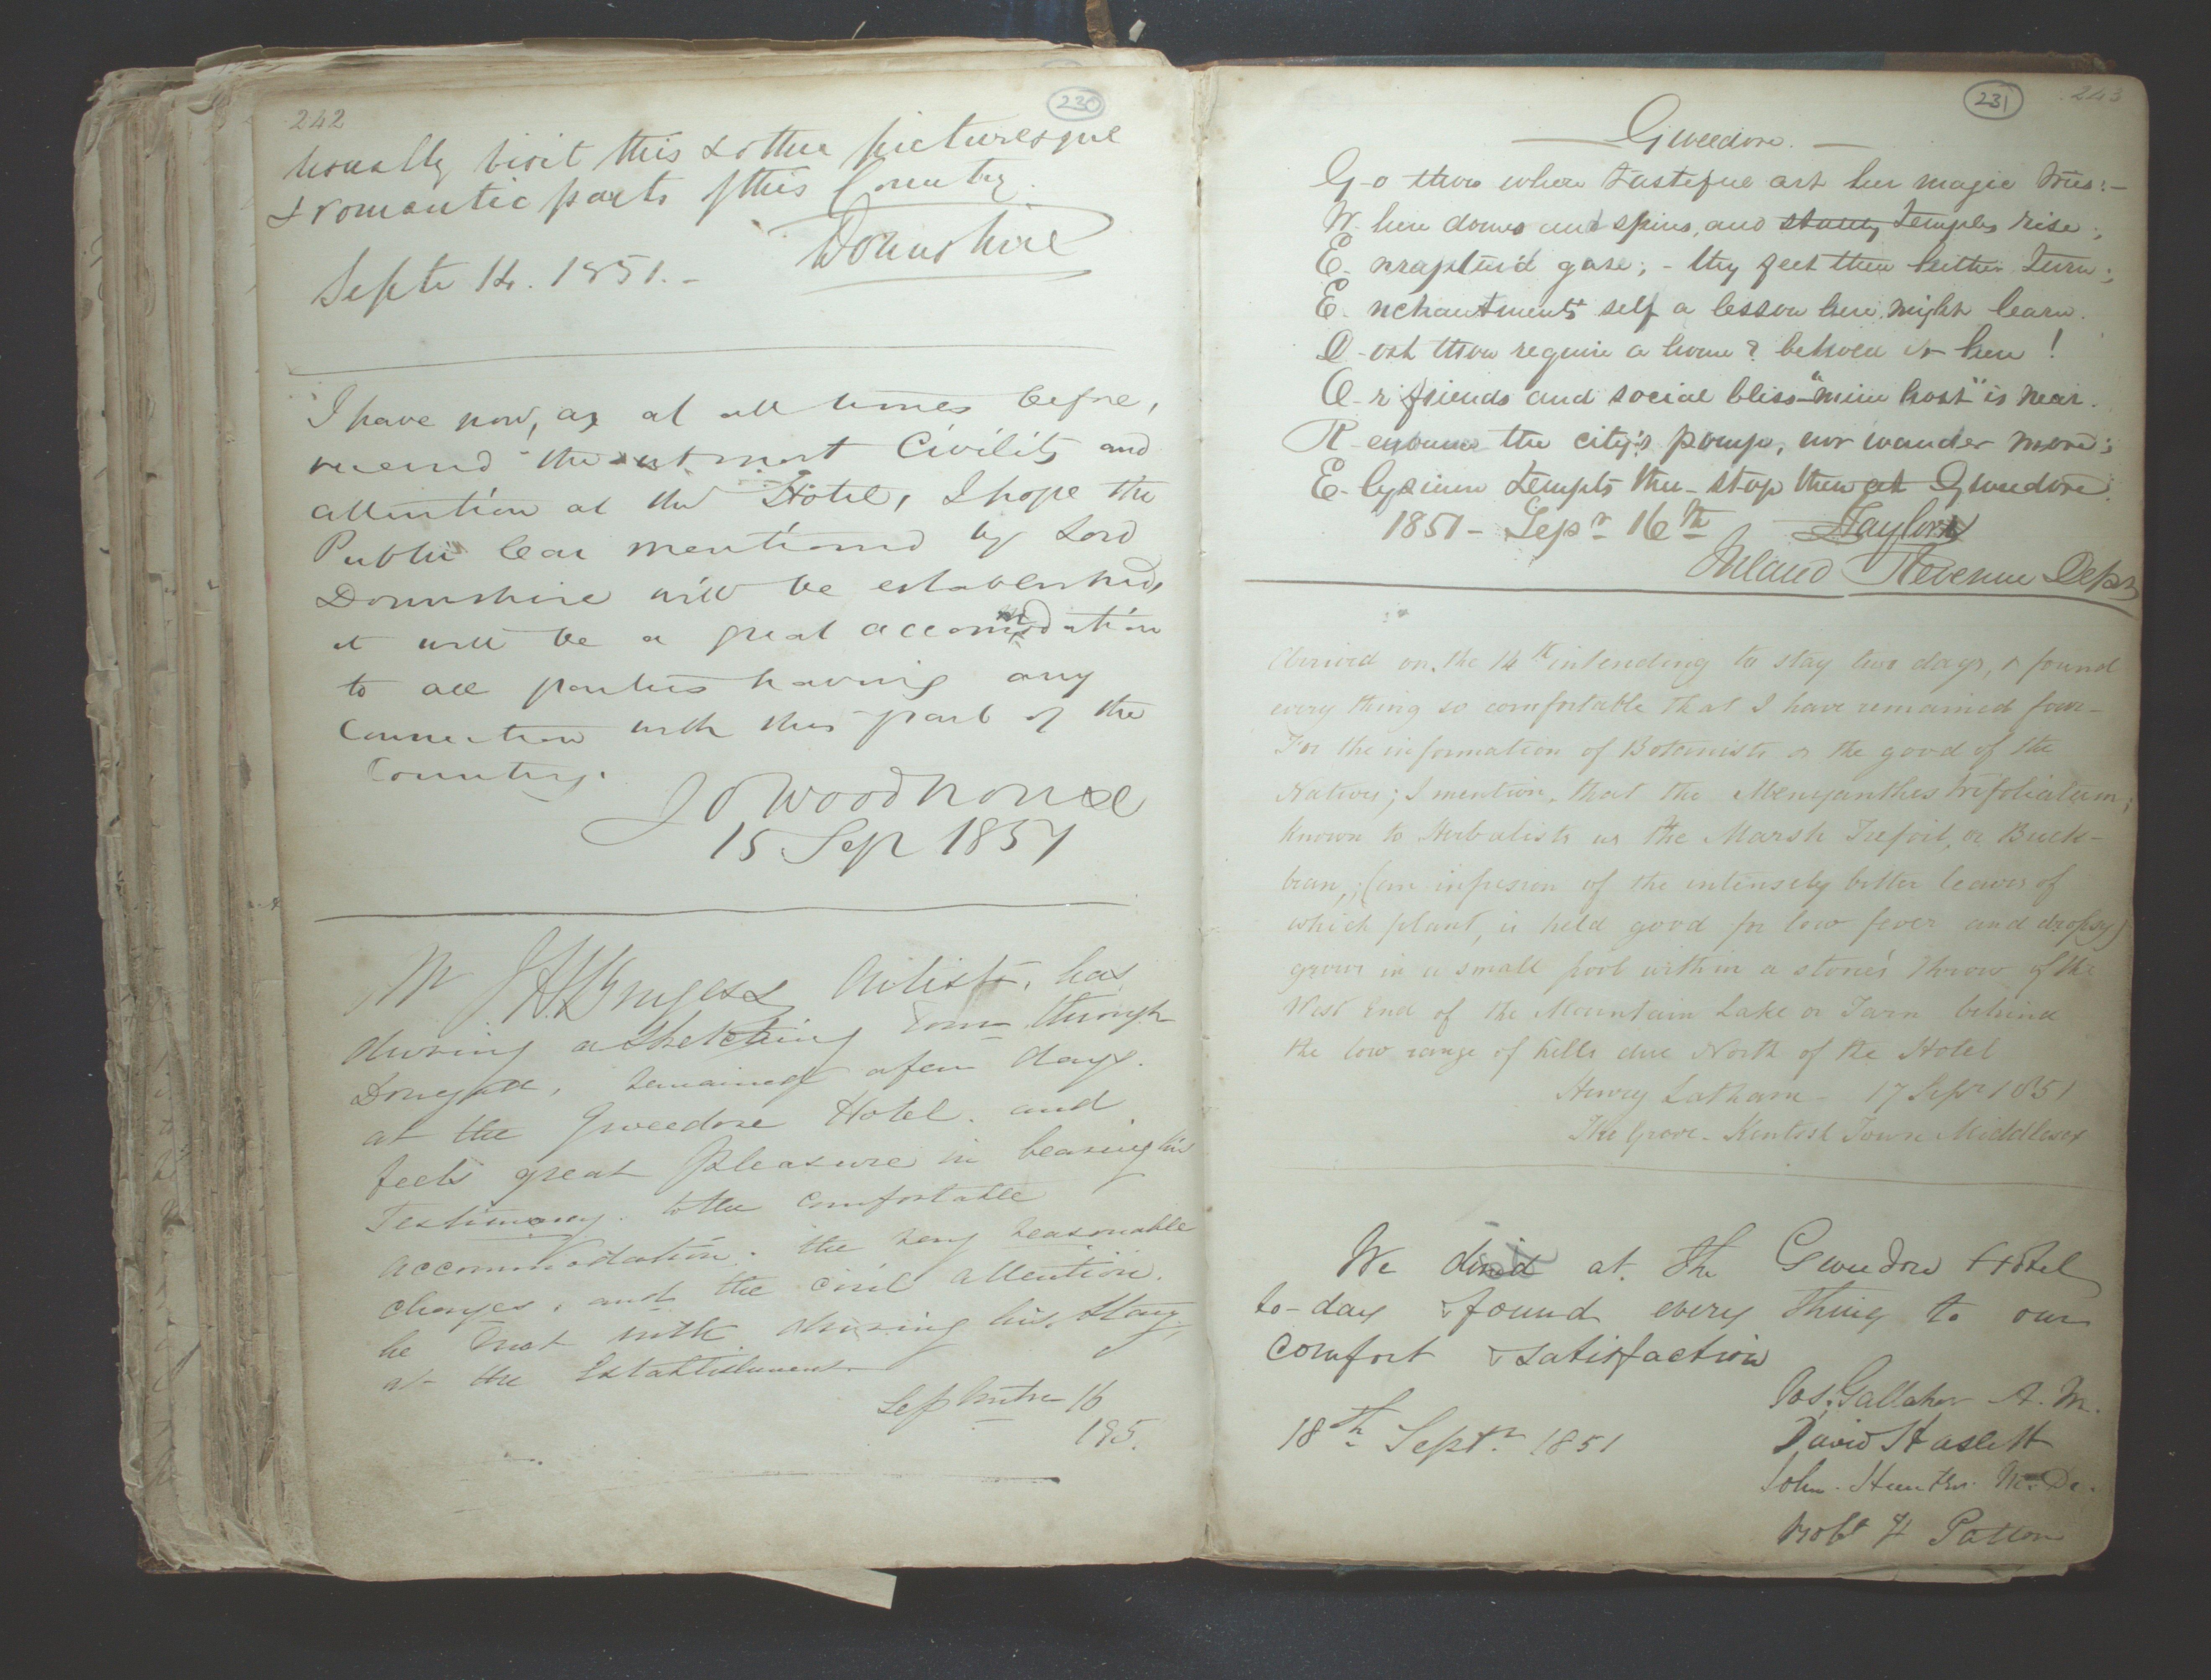 242
230
usually visit this & other picturesque
& romantic parts of this Country.
Downshire
Septr 14. 1851.-
I have now, as at all times before,
received the utmost Civility and
attention at this Hotel, I hope the
Public Car mentioned by Lord
Downshire will be established,
it will be a great accommodation
to all parties having any
Connection with this part of the
Country.
J O Woodhouse
15 Sep 1851
Mr J H Burgess Artist, has
during a sketching Tour through
Donegall, remained a few days
at the Gweedore Hotel. and
feels great pleasure in bearing his
Testimony. to the comfortable
accommodation. the very reasonable
charges, and the civil attention.
he met with during his stay
at the Establishment.
September 16
185.
231
243
Gweedore.
G-o thou where tasteful art her magic tries:-
W-here domes and spires, and stately temples rise;
E-nraptur'd gaze; - thy feet then hither turn;
E-nchantment's self a lesson here might learn.
D-ost thou require a home? behold it here!
O-r friends and social bliss "mine host" is near.
R-enounce the city's pomp, nor wander more;
E-lysium tempts thee - stop then at Gweedore.
1851 - Sepr 16th Taylor
Inland Revenue Dept
Arrived on the 14th intending to stay two days, & found
every thing so comfortable that I have remained four-
For the information of Botanists or the good of the
Natives; I mention, that the Menyanthes trifoliatum;
known to Herbalists as the Marsh Trefoil, or Buck-
bean, (an infusion of the intensely bitter leaves of
which plant, is held good for low fever and dropsy)
grows in a small pool within a stone's throw of the
West End of the Mountain Lake or Tarn behind
the low range of hills due North of the Hotel
Henry Latham - 17 Sepr 1851
The Grove - Kentish Town Middlesex
We dined at the Gweedore Hotel
to-day & found every thing to our
comfort & satisfaction
18th Septr 1851
Jos. Gallaher A. M.
David Haslett
John Hunter M. D.
Robt H Patton